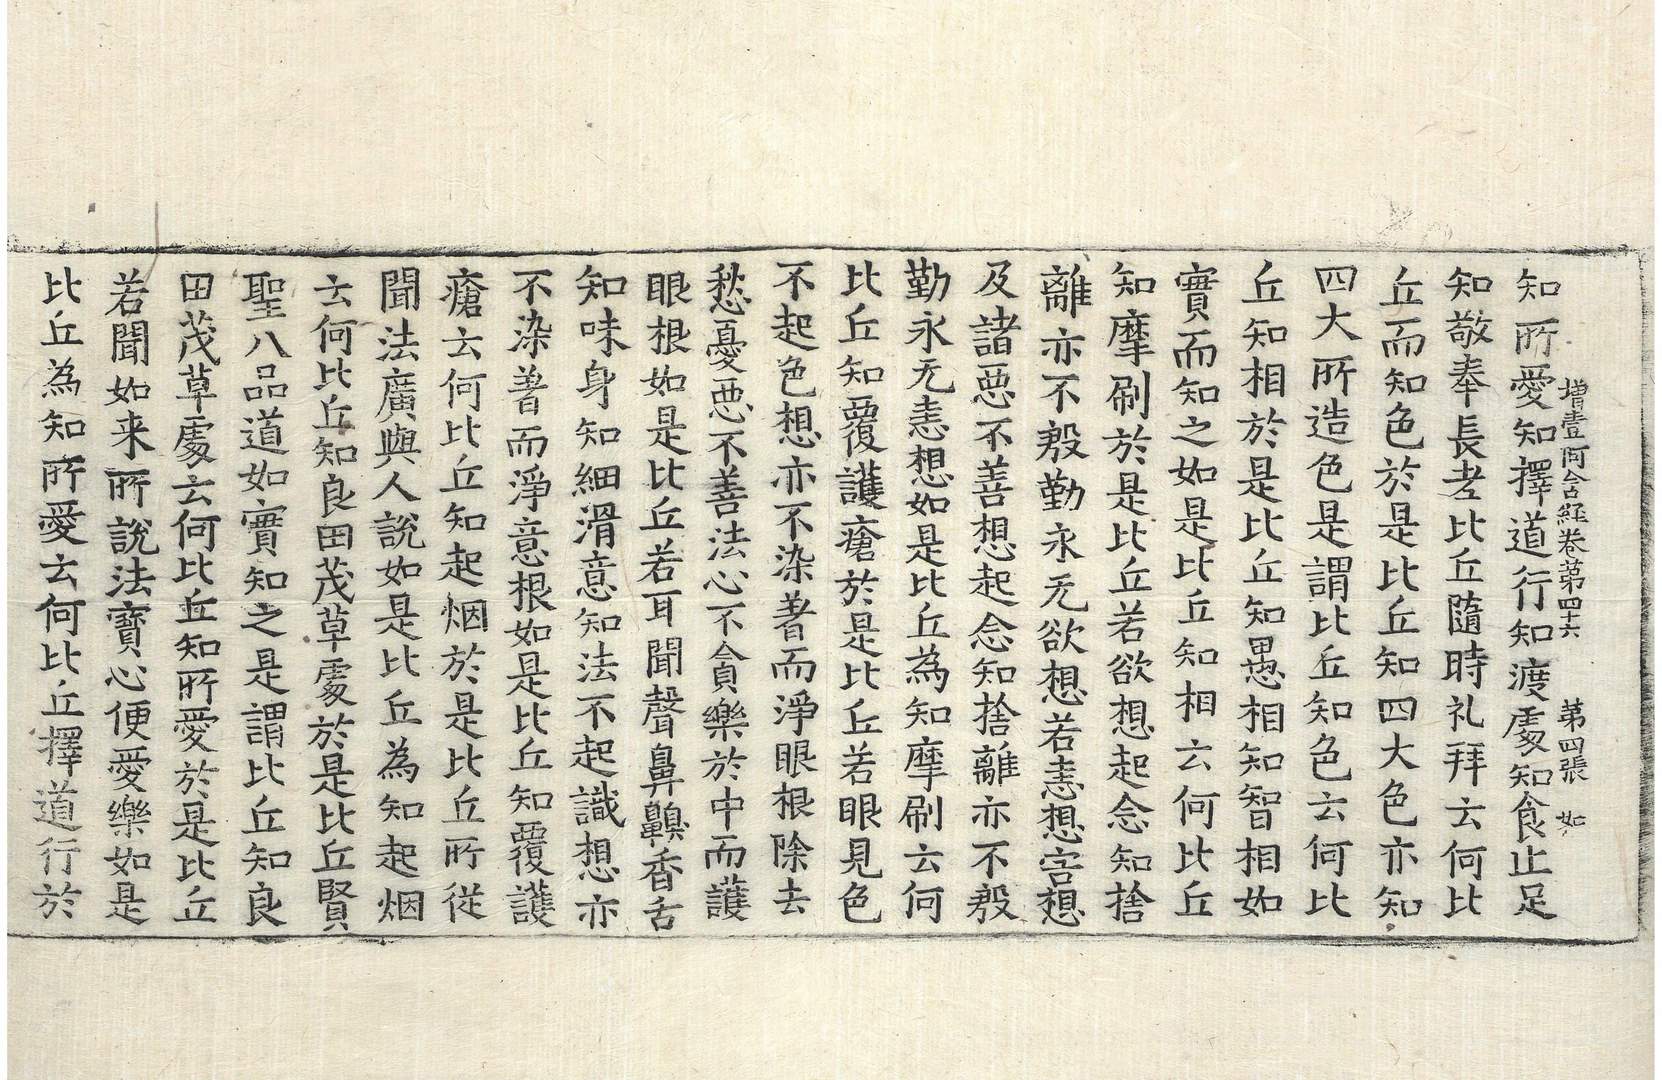 增壹阿含經卷第四十六 第四張 如
知所愛知擇道行知渡處知食止足
知敬奉長老比丘隨時礼拜云何比
丘而知色於是比丘知四大色亦知
四大所造色是謂比丘知色云何比
丘知相於是比丘知愚相知智相如
實而知之如是比丘知相云何比丘
知摩刷於是比丘若欲想起念知捨
離亦不慇勤永无欲想若恚想害想
及諸惡不善想起念知捨離亦不慇
勤永无恚想如是比丘為知摩刷云何
比丘知覆護瘡於是比丘若眼見色
不起色想亦不染著而淨眼根除去
愁憂惡不善法心不貪樂於中而護
眼根如是比丘若耳聞聲鼻齅香舌
知味身知細滑意知法不起識想亦
不染著而淨意根如是比丘知覆護
瘡云何比丘知起烟於是比丘所從
聞法廣與人說如是比丘為知起烟
云何比丘知良田茂草處於是比丘賢
聖八品道如實知之是謂比丘知良
田茂草處云何比丘知所愛於是比丘
若聞如来所說法寶心便愛樂如是
比丘為知所愛云何比丘擇道行於